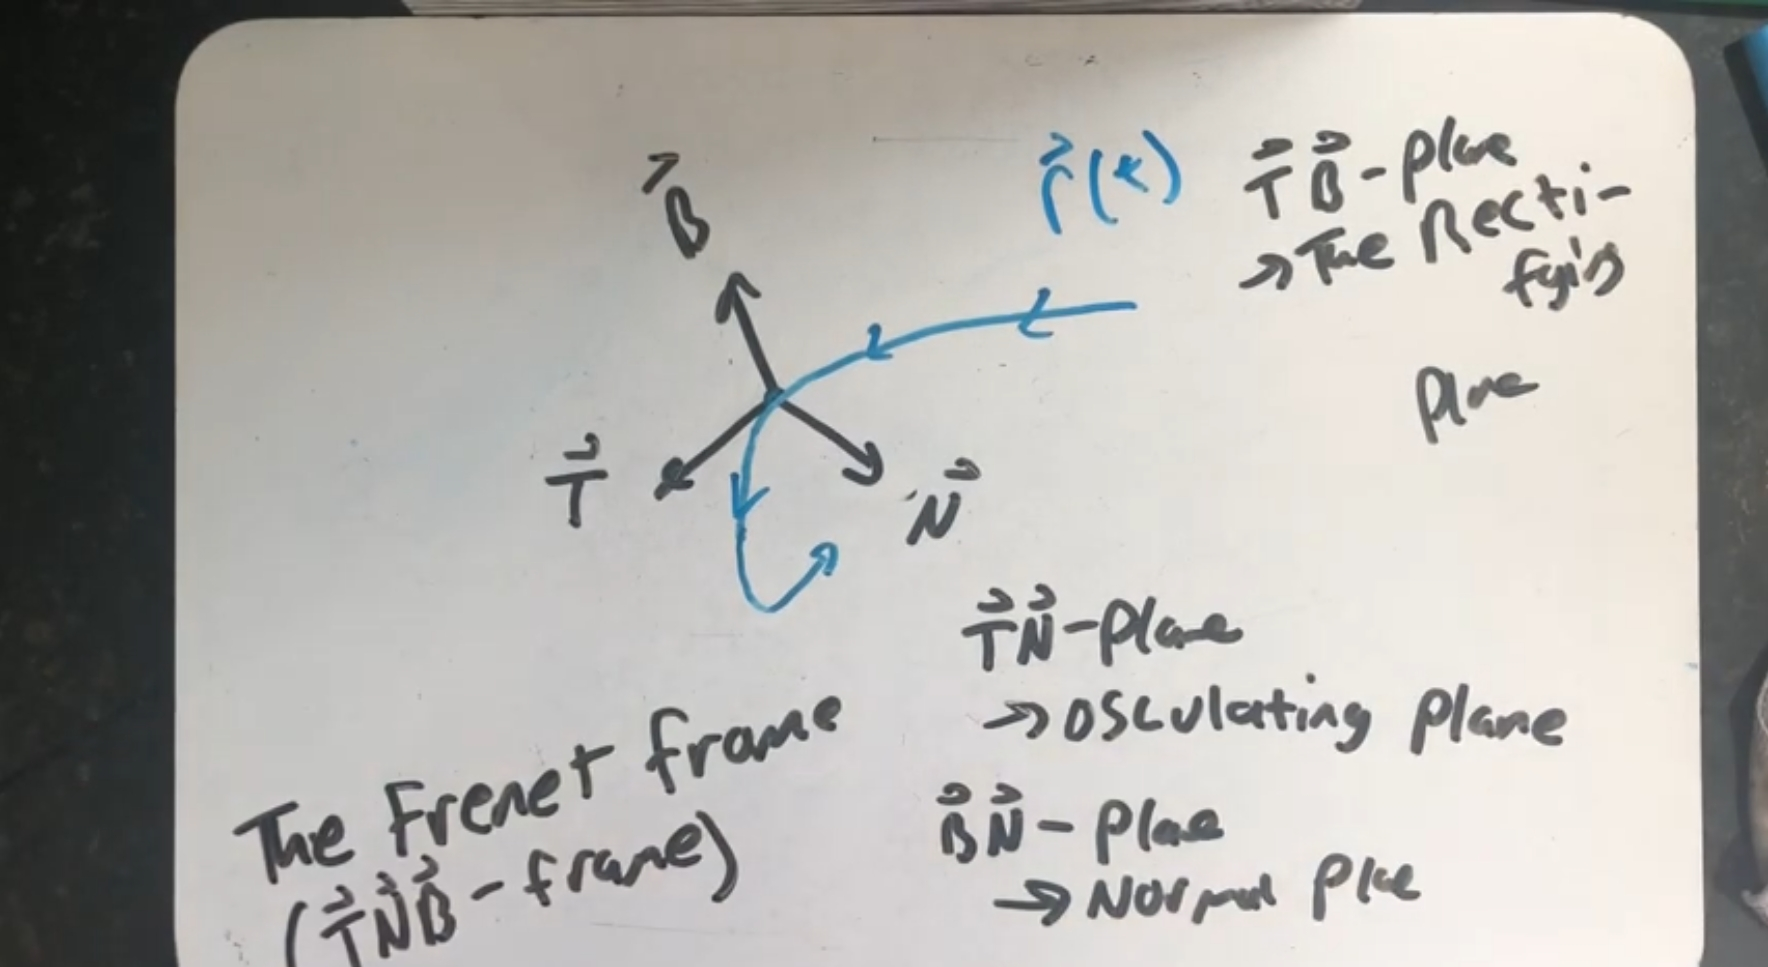 B⃗
r⃗(t)
T⃗B⃗-plane
→The Recti-
fying
Plane
T⃗
N⃗
T⃗N⃗-plane
→Osculating Plane
B⃗N⃗-plane
→Normal Plane
The Frenet frame
(T⃗N⃗B⃗-frame)